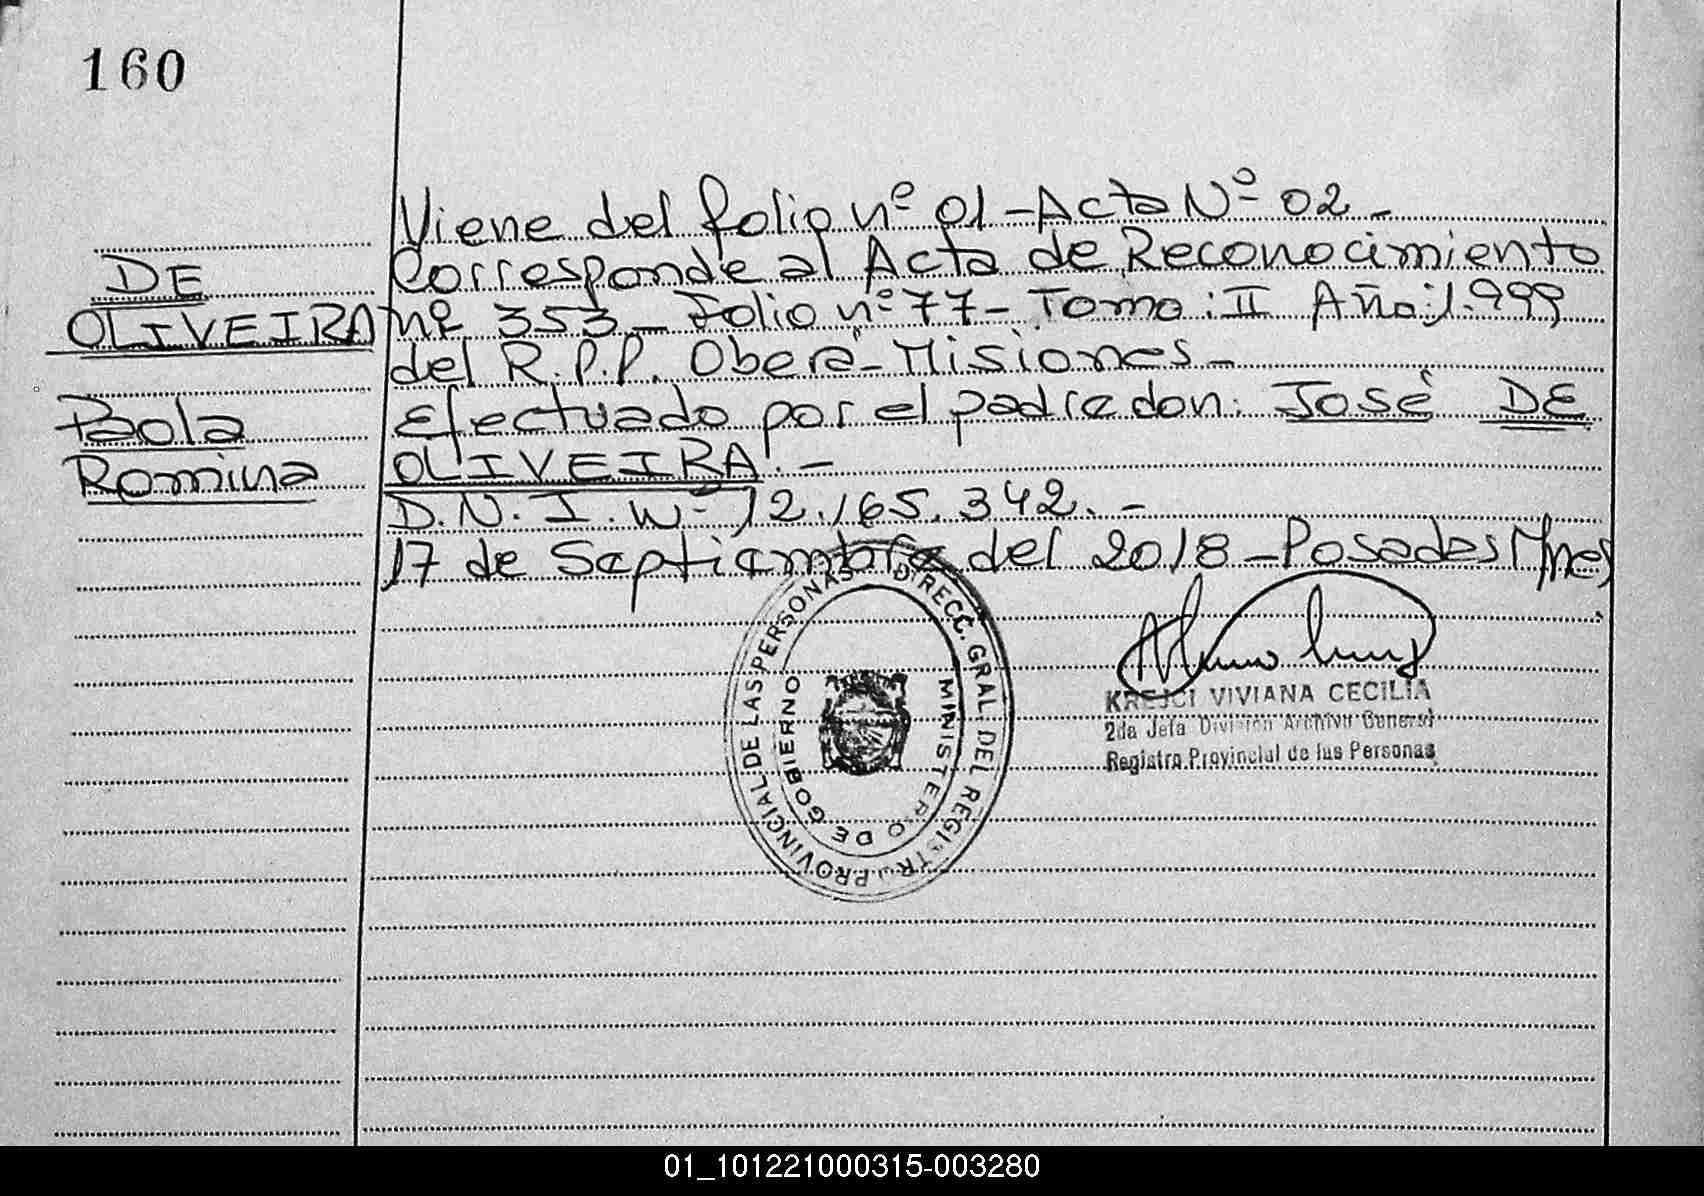 160
DE
OLIVEIRA
Paola
Romina
Viene del folio nº 01 - Acta Nº 02 -
Corresponde al Acta de Reconocimiento
nº 353 - Folio nº 77 - Tomo: II Año: 1.999
del R.P.P. Oberá - Misiones -
Efectuado por el padre don: José DE
OLIVEIRA. -
D.N.I. Nº 12.165.342. -
17 de Septiembre del 2018 - Posadas Mnes
DIRECC. GRAL. DEL REGISTRO PROVINCIAL DE LAS PERSONAS
MINISTERIO DE GOBIERNO
KREJCI VIVIANA CECILIA
2da Jefa División Archivo General
Registro Provincial de las Personas
01_101221000315-003280